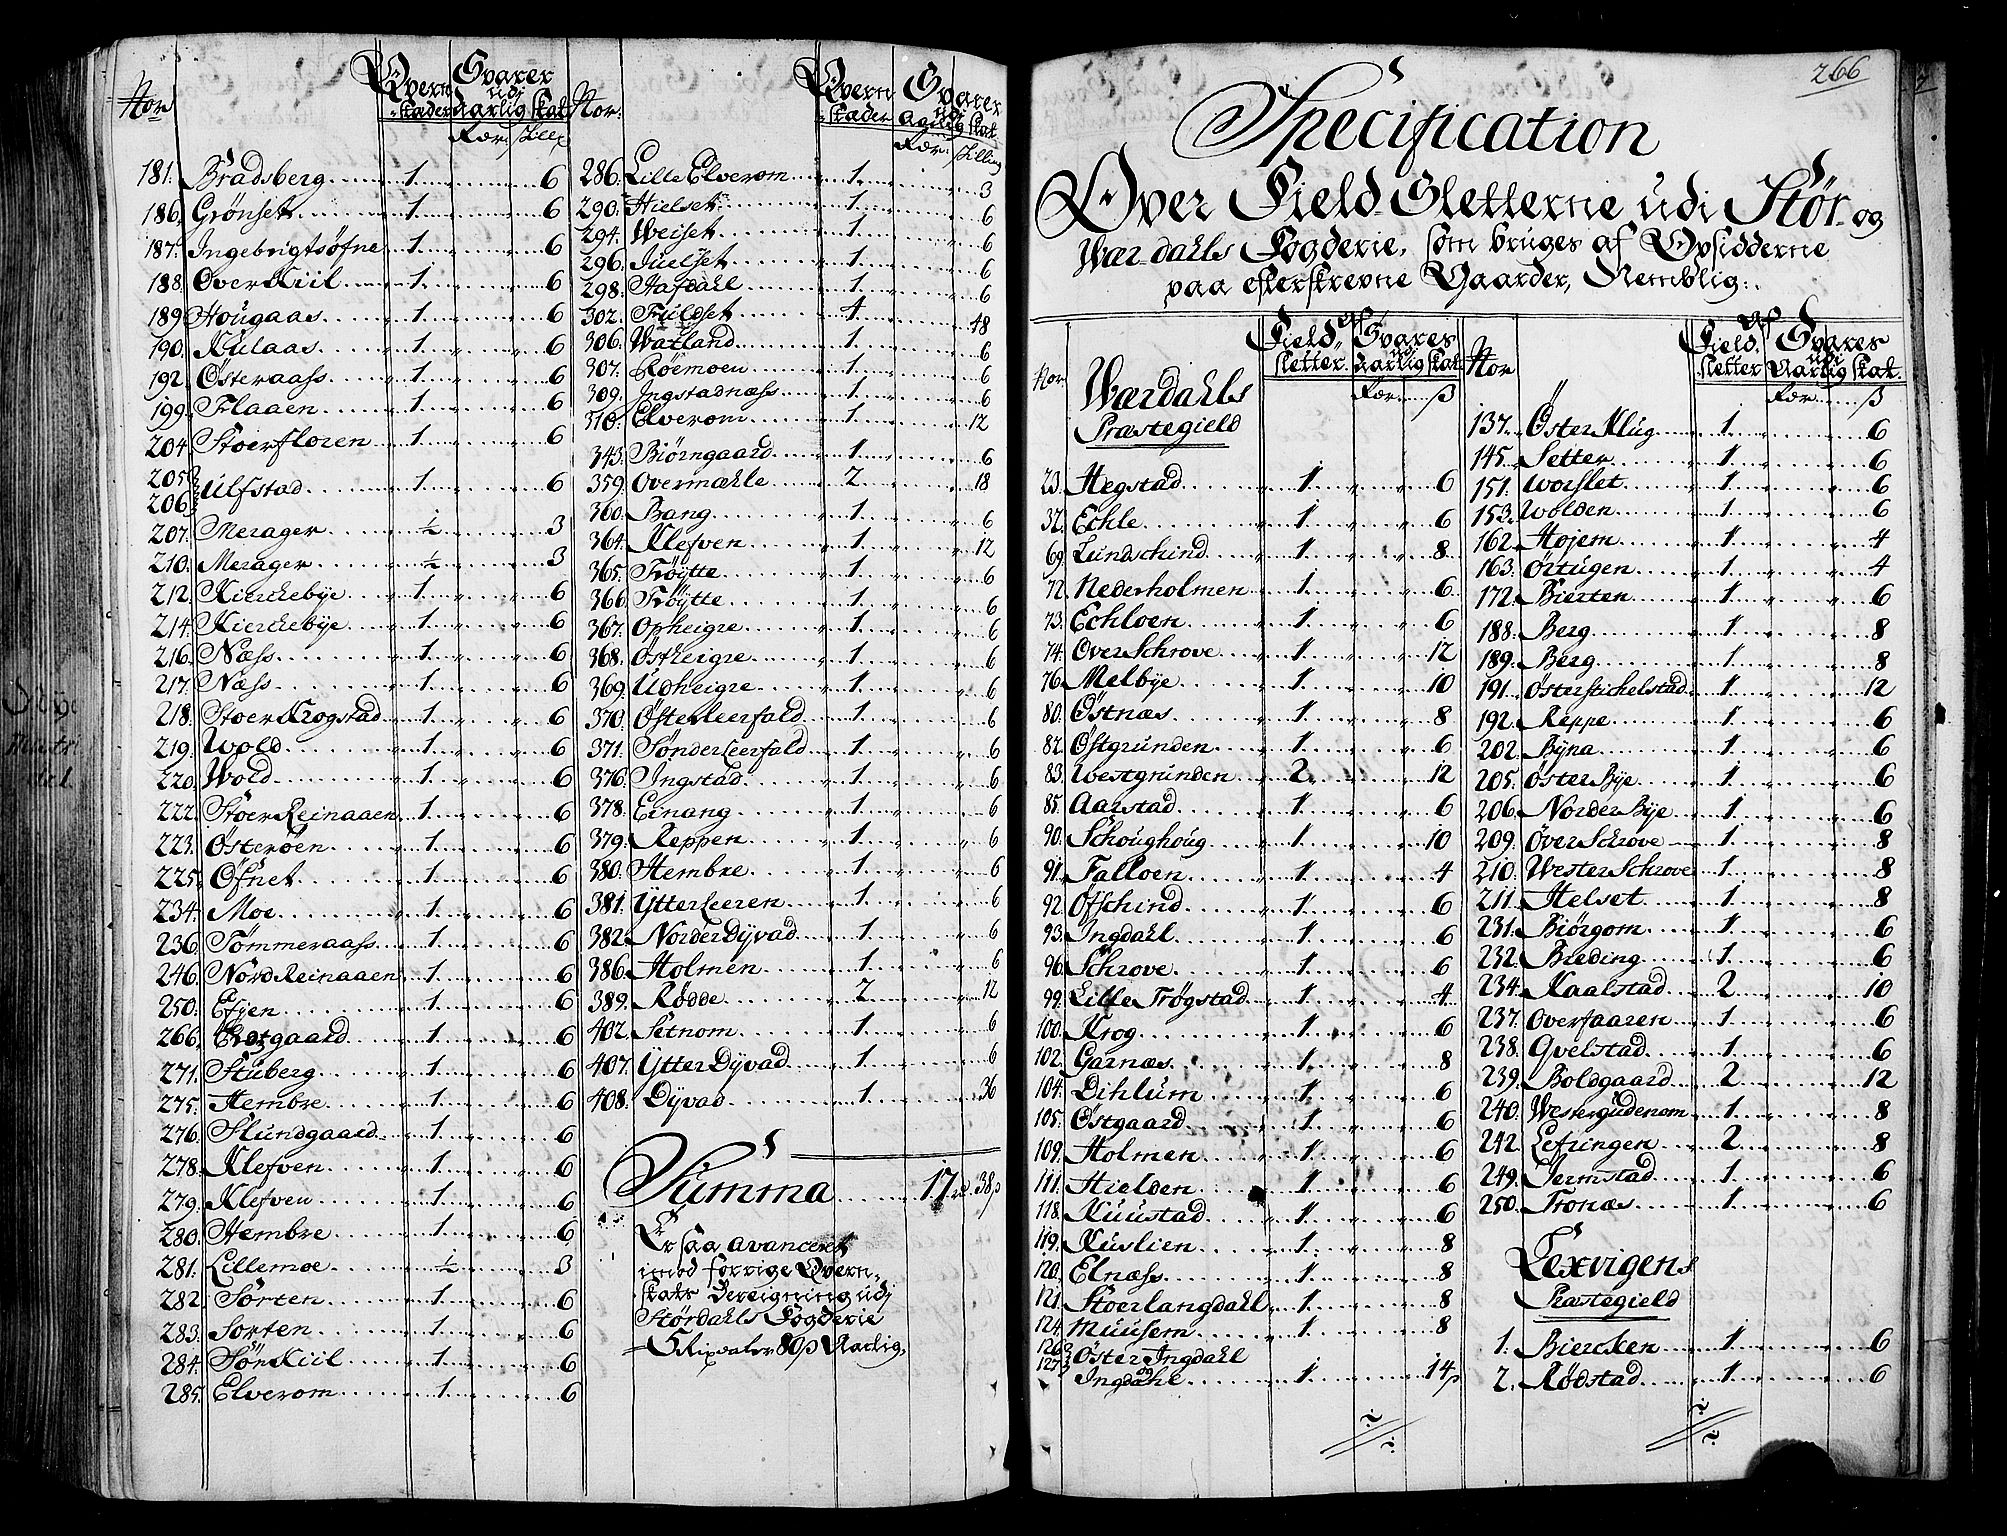 Nor
Qvern
Svarer
udi
Aarlig Skat
181. Bradsberg 1 6
186. Grönset 1 6
187. Ingebrigtsöfne 1 6
188. Over Kiil 1 6
189 Hougaas 1 6
190. Kulaas 1 6
192. Österaass 1 6
199. Flaaen 1 6
204. Stoerfloren 1 6
205
206 Ulfstad 1 6
207. Merager ½ 3
210. Merager ½ 3
212. Kierckebÿe 1 6
214. Kierckebÿe 1 6
216. Næss 1 6
217. Næss 1 6
218. Stoer Krogstad 1 6
219. Wold 1 6
220. Wold 1 6
222. Stoer Reinaaen 1 6
223. Österöen 1 6
225. Öfnet 1 6
234. Moe 1 6
236. Tömmeraass 1 6
246. Nord Reinaaen 1 6
250. Efjen 1 6
266. 1 6
271. Stuberg 1 6
275. Hembre 1 6
276. Slundgaard 1 6
278. Klefven 1 6
279. Klefven 1 6
280. Hembre 1 6
281. Lillemoe ½ 3
282. Sörten 1 6
283. Sorten 1 6
284. Sön Kiil 1 6
285. Elverom 1 6
Nor:
Qvern
Svarer
udi
Aarlig Skat
286. Lille Elverom 1 3
290. Hielset 1 6
294. Weiset 1 6
296. Juelset 1 6
298. Hafdahl 1 6
302. Fuldset 4 48
306. Watland 1 6
307. Röemoen 1 6
309. Ingstadnæss 1 6
310. Elverom 1 12
343. Biörngaard 1 6
359. Overmæhle 2 18
360. Bang 1 6
364. Klefven 1 12
365. Fröÿtte 1 6
366. Fröÿtte 1 6
367. Opheigre 1 6
368. Östheigre 1 6
369. Udheigre 1 6
370. Österleerfald 1 6
371. Sönderleerfald 1 6
376. Ingstad 1 6
378. Einang 1 6
379. Reppen 1 6
380. Hembre 1 6
381. Ÿtterleeren 1 6
382. Norder Dÿvad 1 6
386. Holmen 1 6
389. Rödde 2 12
402. Setnom 1 6
407. Ÿtter Dÿvad 1 6
408. Dÿvad 1 36
Summa 17 rd 38 β
Er saa avanceret
imod forrige Qvern-
skats Beregning udj
Stördahls Fogderie
5 Rixdaler 80 β Aarlig.
266
Specification
Over Field Sletterne udi Stör- og
Wær-dahls Fogderie, som bruges af Opsidderne
paa efterskrevne Gaarder, Nemblig:.
Nor
Field
sletter
Af Svares
udi
Aarlig Skat
Rdr. β
Wærdahls
Præstegield
23. Hegstad 1 6
32. Echle 1 6
69. Lundschind 1 8
72. Nederholmen 1 6
73. Echloen 1 6
74. Over Schrove 1 12
76. Melbÿe 1 10
80. Östnæs 1 8
82. Östgrunden 1 6
83. Westgrunden 2 12
85. Aarstad 1 6
90. Schoughoug 1 10
91. Falloen 1 4
92. Öfschind 1 6
93. Ingdahl 1 6
96. Schrove 1 6
99. Lille Trögstad 1 4
100. Krog 1 6
102. Garnæs 1 8
104. Dihlum 1 6
105. Östgaard 1 6
109. Holmen 1 6
111. Hielden 1 6
118. Kuustad 1 6
119. Kuslien 1 8
120. Elnæss 1 8
121. Stoerlangdahl 1 8
124. Muusem 1 8
126
127 Öster Ingdahl
Ingdahl 1 14 β
Nor
Field
sletter
Af Svares
udi
Aarlig Skat.
Rdr. β
137. Öster Klug 1 6
145. Setter 1 6
151. Worslet 1 6
153. Wolden 1 6
162. Hojem 1 4
163. Örtugen 1 4
172. Bierten 1 6
188. Berg 1 8
189. Berg 1 8
191. Österstichelstad 1 12
192. Reppe 1 6
202. Bÿna 1 6
205. Öster Bÿe 1 6
206. Norder Bÿe 1 6
209. Över Schrove 1 8
210. Wester Schrove 1 8
211. Helset 1 8
231. Biörgom 1 6
232. Breding 1 6
234. Kaalstad 2 10
237. Overfaaren 1 6
238. Qvelstad 1 6
239. Boldgaard 2 12
240. Westergudenom 1 8
242. Lefringen 2 8
249. Jermstad 1 6
250. Tronæs 1 6
Lexvigens
Præstegield
1. Biercken 1 6
2. Rödstad 1 6